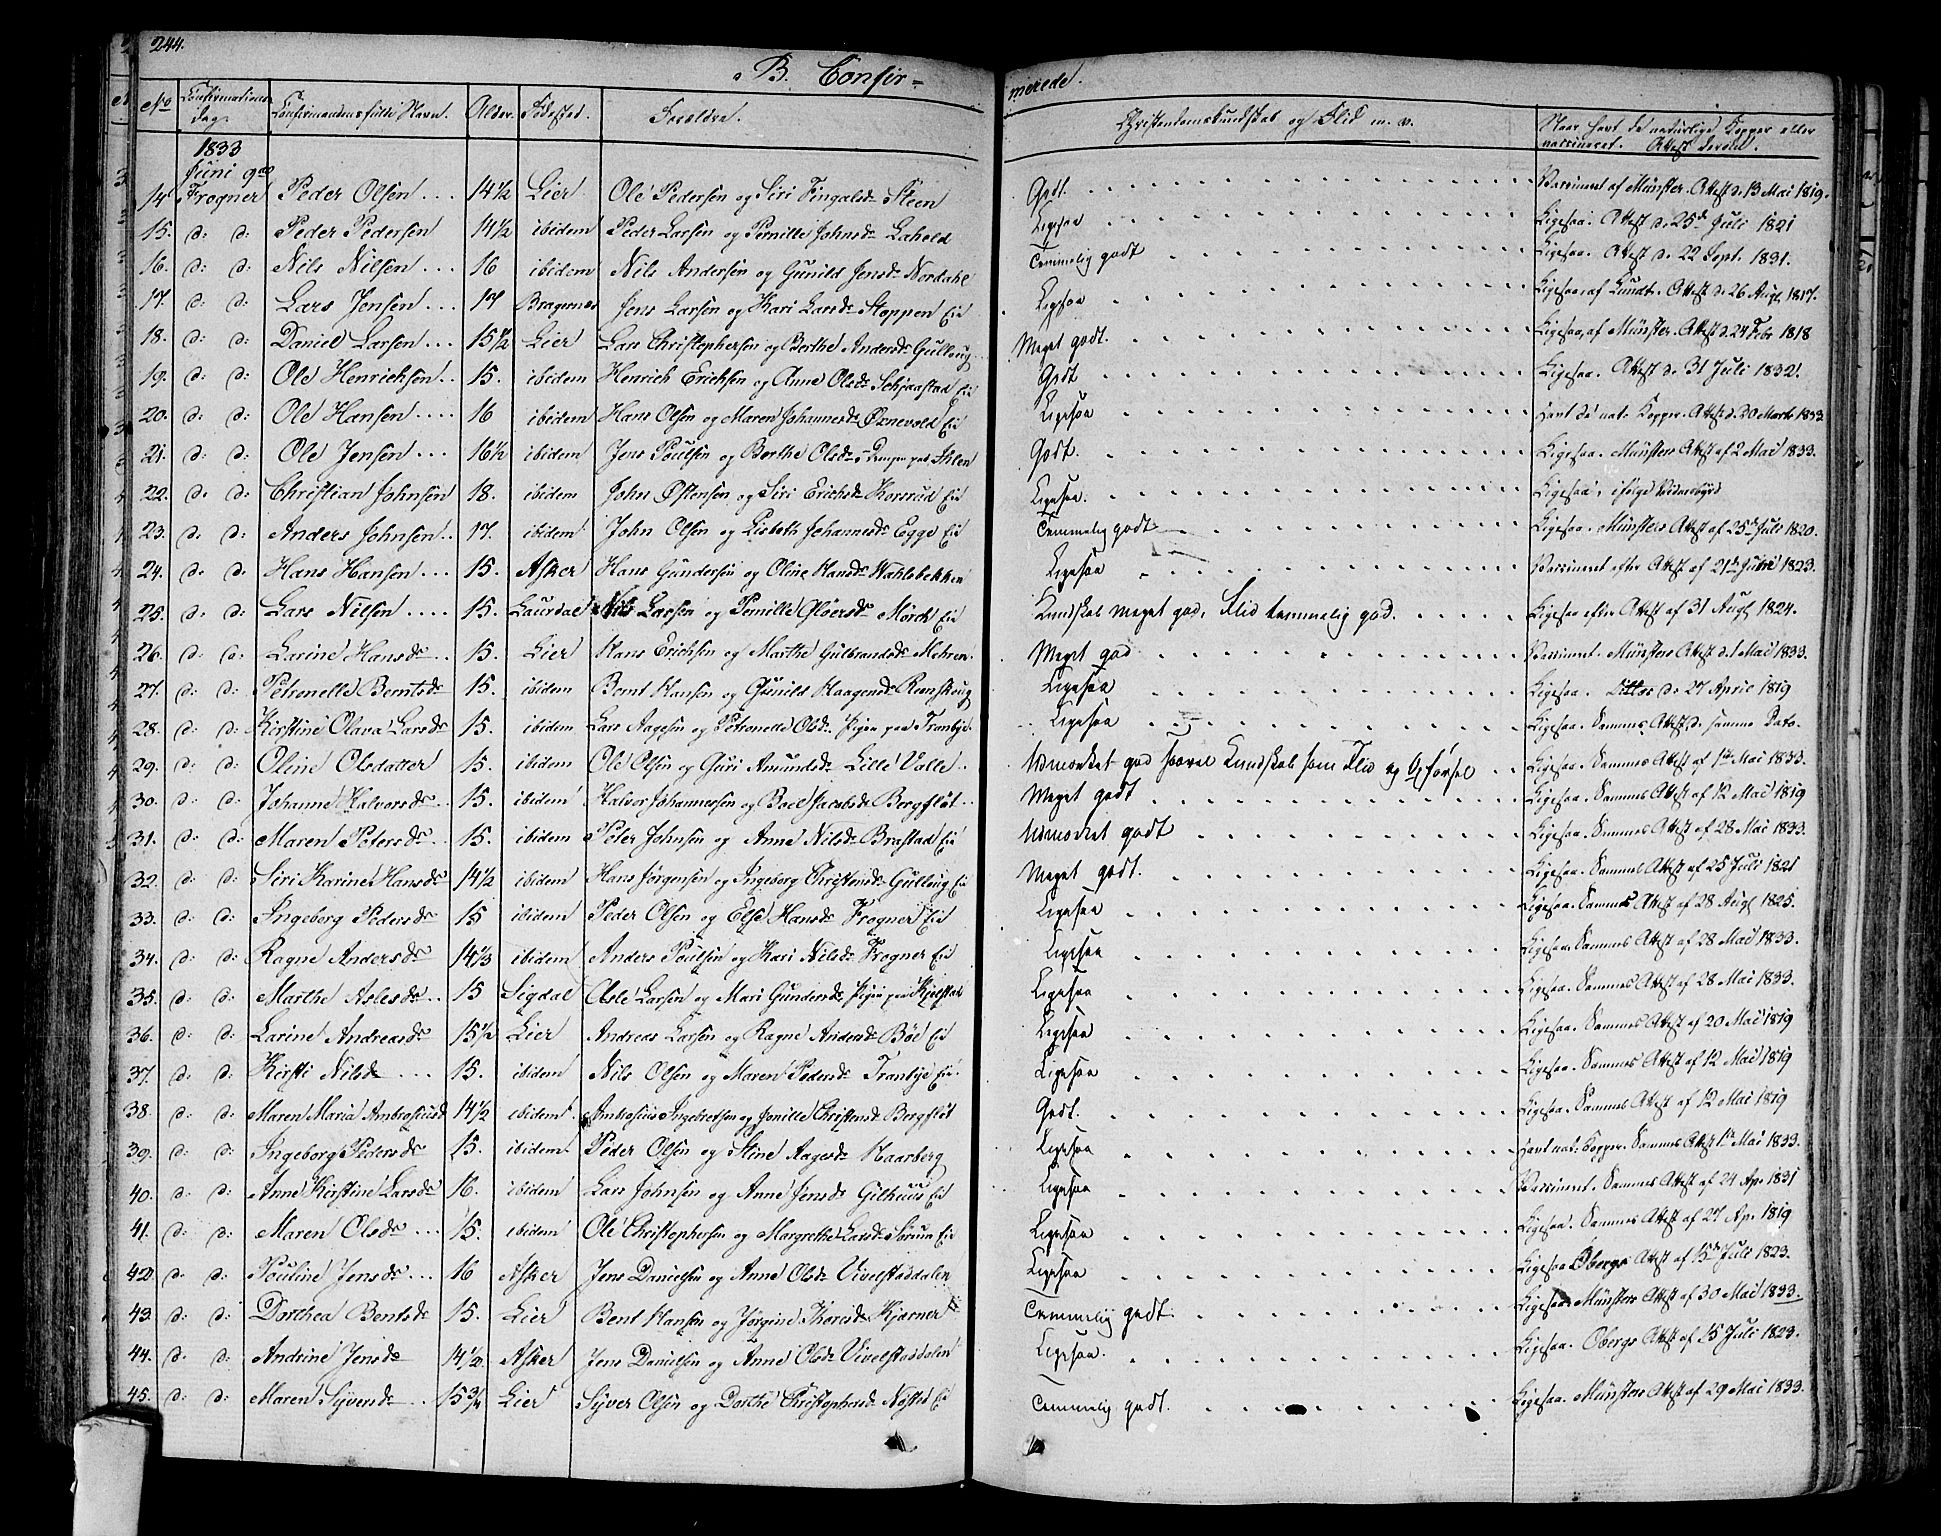 244.
B. Confir-
merede.
No Confirmations dag. Confirmandens fulde Navn. Alder. Fødested. Forældre. Christendomskundskab og Flid m. v. Naar havt de naturlige Kopper eller vaccineret. Attest derom.
1833
Juni 9de
14 Frogner Peder Olsen 14 1/2 Lier Ole Pedersen og Siri Fingalsd: Steen Godt. Vaccineret af Münster. Attest d. 13 Mai 1819.
15. d: d: Peder Pedersen 14 1/2 ibidem Peder Larsen og Pernille Johnsd: Lahold Ligesaa Ligesaa. Attest d. 25de Juli 1821
16. d: d: Nils Nilsen 16 ibidem Nils Andersen og Gunild Jensd: Nordahl Temmelig godt Ligesaa. Attest d. 22 Sept. 1831.
17. d: d: Lars Jensen 17 Bragernes Jens Larsen og Kari Larsd: Stoppen Eie Ligesaa Ligesaa, af Lundt. Attest d. 26 Aug. 1817.
18. d: d: Daniel Larsen 15 1/2 Lier Lars Christophersen og Berthe Andersd: Gulloug Meget godt. Ligesaa, af Münster. Attest d. 24 Febr 1818
19. d: d: Ole Henrichsen 15. ibidem Henrich Erichsen og Anne Olsd: Schjaastad Eie Godt Ligesaa. Attest d. 31 Juli 1832.
20. d: d: Ole Hansen 16 ibidem Hans Olsen og Maren Johannesd: Øznevold Eie Ligesaa Havt de nat: Kopper. Attest d. 20 Marts 1833
21. d: d: Ole Jensen 16 1/2 ibidem Jens Poulsen og Berthe Olsd: paa Ihlen Godt. Ligesaa. Münsters Attest af 2 Mai 1833.
22. d. d: Christian Johnsen 18. ibidem John Østensen og Siri Erichsd: Korsrud Eie Ligesaa. Ligesaa, ifølge Vidnesbyrd
23. d: d: Anders Johnsen 17. ibidem John Olsen og Lisbeth Johannesd: Egge Eie Temmelig godt Ligesaa. Münsters Attest af 25de Juli 1820.
24. d: d: Hans Hansen 15. Asker Hans Gundersen og Oline Hansd: Wahlebekken Ligesaa Vaccineret efter Attest af 21de Juni 1823.
25. d: d: Lars Nilsen 15. Laurdal Nils Larsen og Pernille Oliversd: Mörck Eie Kundskab meget god, Flid temmelig god. Ligesaa efter Attest af 31 Aug. 1824.
26. d: d: Larine Hansd: 15. Lier Hans Erichsen og Marthe Gulbrandsd: Mehren. Meget god Vaccineret. Münsters Attest d. 1 Mai 1833.
27. d: d: Petronelle Berntsd: 15. ibidem Bernt Hansen og Gunild Haagensd: Remskoug Ligesaa Ligesaa. Dittos d. 27 April 1819
28. d: d: Kirstine Olava Larsd: 15. ibidem Lars Aagesen og Petronelle Olsd: Pigen paa Tranbye Ligesaa Ligesaa. Sammes Attest d. samme Dato.
29. d: d: Oline Olsdatter 15. ibidem Ole Olsen og Guri Amundsd: Lille Valle Udmærket god saavel Kundskab som Flid og Opførsel Ligesaa. Sammes Attest af 1te Mai 1833.
30. d: d: Johanne Halvorsd: 15. ibidem Halvor Johannesen og Boel Jacobsd: Bergfløt Meget godt Ligesaa. Sammes Attest af 12 Mai 1819
31. d: d: Maren Petersd: 15. ibidem Peter Johnsen og Anne Nilsd: Brastad Eie Udmærket godt Ligesaa. Sammes Attest af 28 Mai 1833.
32. d: d: Siri Karine Hansd: 14 1/2 ibidem Hans Jørgensen og Ingeborg Christensd: Gulloug Eie Meget godt. Ligesaa. Sammes Attest af 25 Juli 1821
33. d: d: Ingeborg Pedersd: 15 ibidem Peder Olsen og Else Hansd: Frogner Eie Ligesaa Ligesaa. Sammes Attest af 28 Aug. 1825.
34. d: d: Ragne Andersd: 14 1/3 ibidem Anders Poulsen og Kari Nilsd: Frogner Eie Ligesaa Ligesaa. Sammes Attest af 28 Mai 1833.
35. d: d: Marthe Aslesd: 15 Sigdal Asle Larsen og Mari Gundersd: Pigen paa Kjelstad Ligesaa Ligesaa. Sammes Attest af 28 Mai 1833.
36. d: d: Larine Andreasd: 15 1/2 Lier Andreas Larsen og Ragne Andersd: Böe Eie Ligesaa Ligesaa. Sammes Attest af 20 Mai 1819
37. d: d: Kirsti Nilsd: 15. ibidem Nils Olsen og Maren Pedersd: Tranbye Eie. Ligesaa Ligesaa. Sammes Attest af 12 Mai 1819
38. d: d: Maren Maria Ambrosiusd 14 1/2 ibidem. Ambrosius Ingebretsen og Jonille Christensd: Bergfløt Godt. Ligesaa. Sammes Attest af 12 Mai 1819
39. d: d: Ingeborg Pedersd: 15. ibidem. Peder Olsen og Stine Aagesd: Haarberg Ligesaa Havt nat: Kopper. Sammes Attest 1te Mai 1833.
40. d: d: Anne Kirstine Larsd: 16. ibidem Lars Johnsen og Anne Jensd: Gilhuus Eie Ligesaa Vaccineret. Sammes Attest af 24 Apr. 1831
41. d: d: Maren Olsd: 15. ibidem Ole Christophersen og Margrethe Larsd: Sørum Eie Ligesaa Ligesaa. Sammes Attest af 27 Apr. 1819
42. d: d: Pouline Jensd: 16 Asker Jens Danielsen og Anne Olsd: Vivelstaddalen Ligesaa Ligesaa Obergs Attest af 15de Juli 1823.
43. d: d: Dorthea Bentsd: 15. Lier Bent Hansen og Jørgine Thoresd: Kjærner Temmelig godt. Ligesaa Münsters Attest af 30 Mai 1833.
44. d: d: Andrine Jensd: 14 1/2 Asker Jens Danielsen og Anne Olsd: Vivelstaddalen Ligesaa. Ligesaa. Obergs Attest af 15 Juli 1823.
45. d: d: Maren Syversd: 15 3/4 Lier Syver Olsen og Dorthe Christophersd: Nøsted Eie Temmelig godt. Ligesaa. Münsters Attest af 29 Mai 1833.